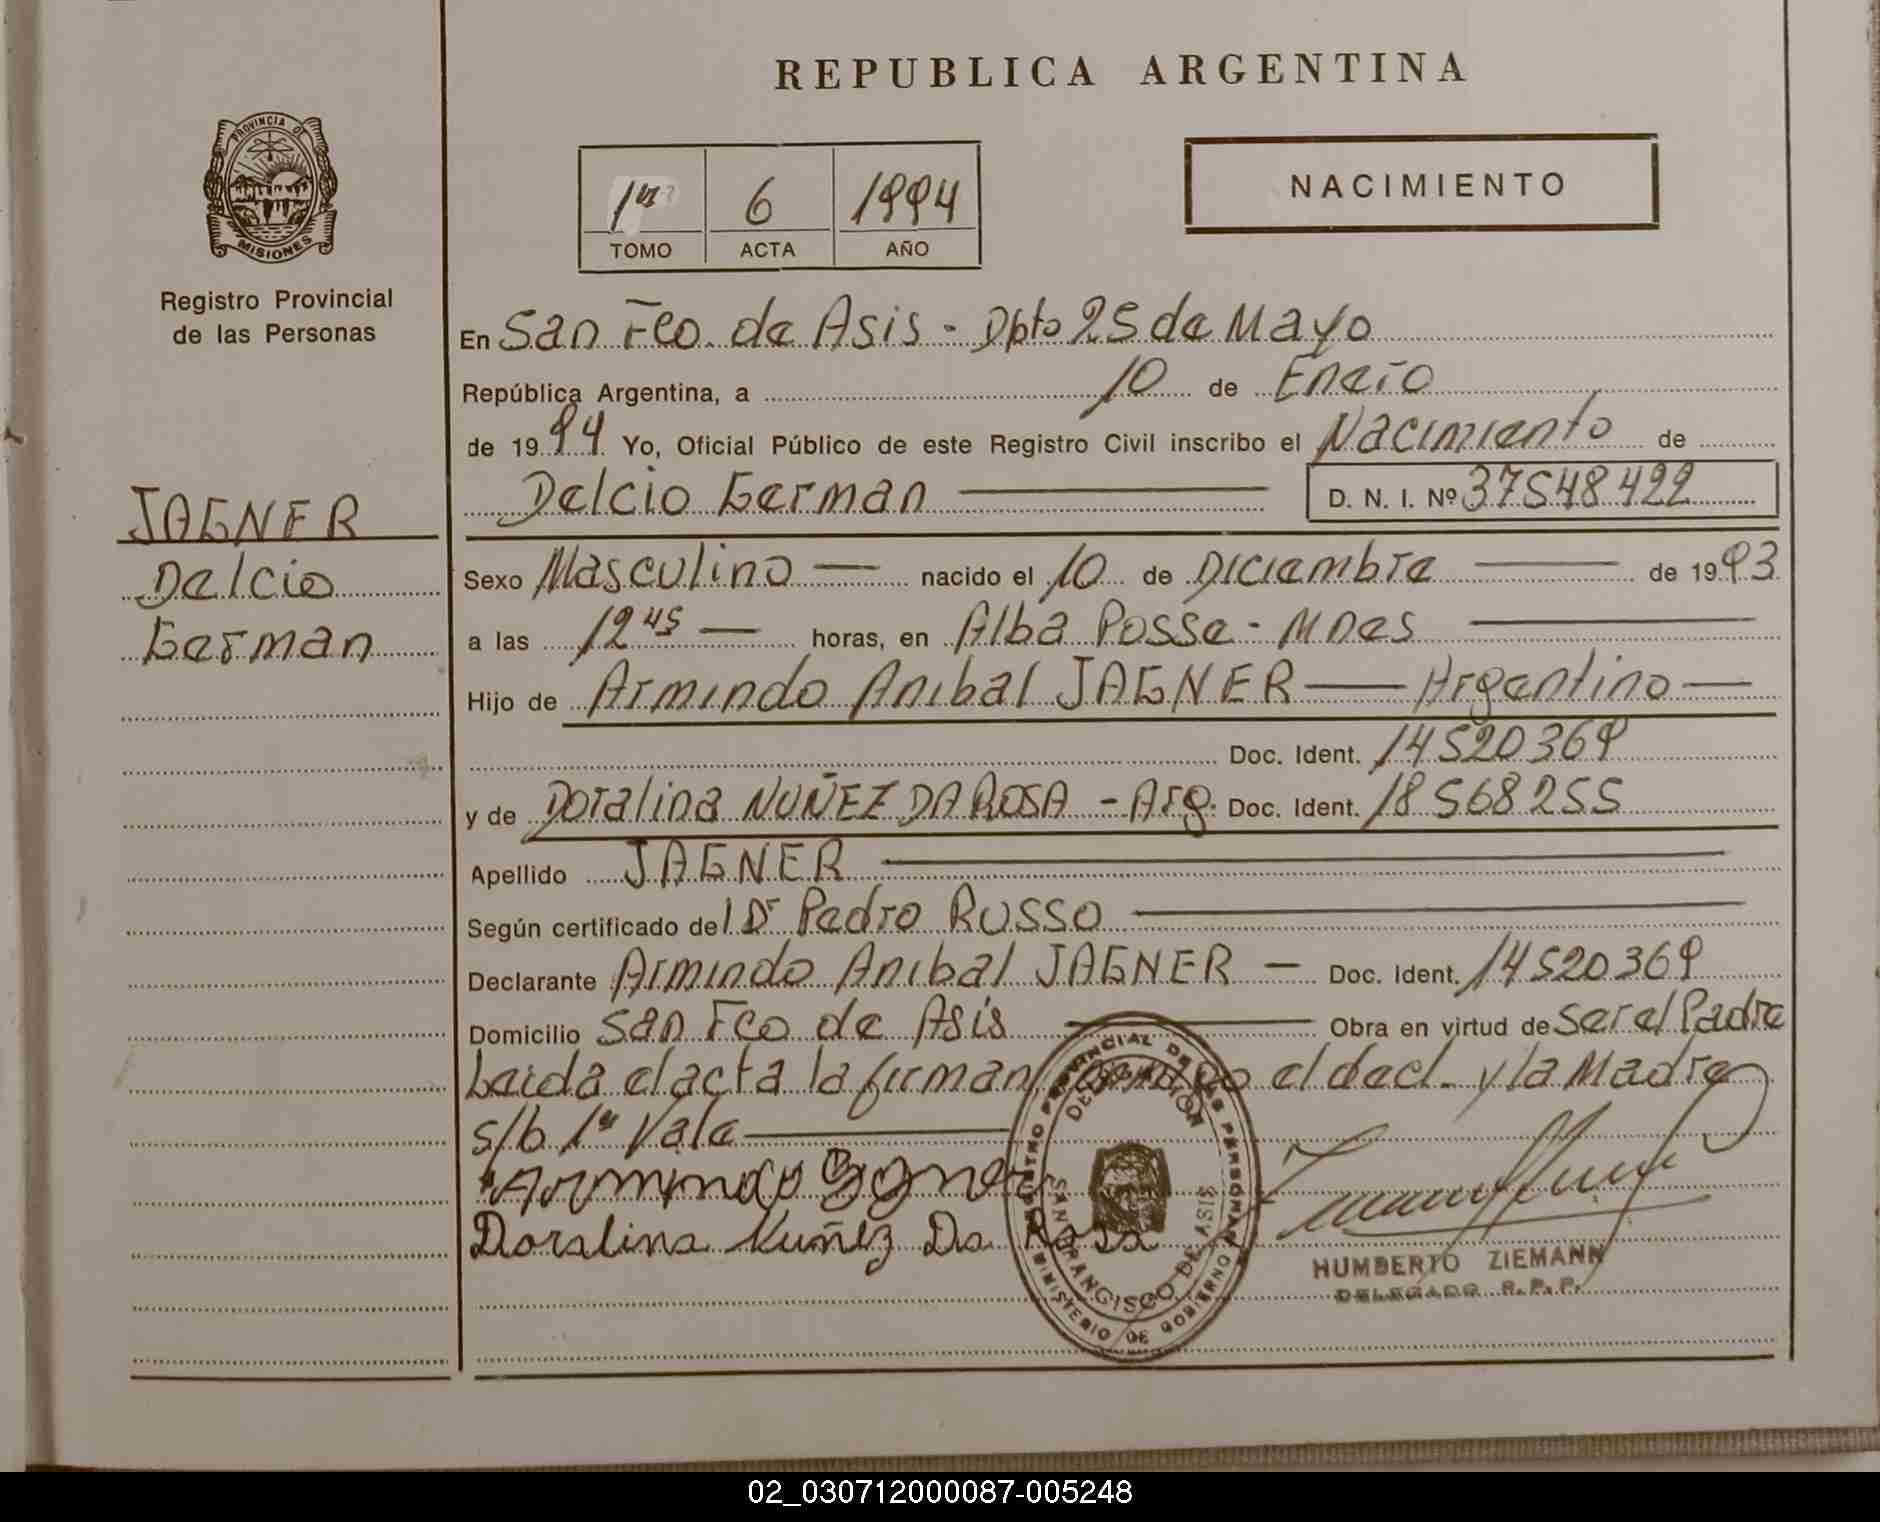 REPUBLICA ARGENTINA
PROVINCIA DE
MISIONES
Registro Provincial
de las Personas
1er 6 1994
TOMO ACTA AÑO
NACIMIENTO
En San Fco. de Asis - Dpto 25 de Mayo
República Argentina, a 10 de Enero
de 1994 Yo, Oficial Público de este Registro Civil inscribo el Nacimiento de
Delcio German D. N. I. Nº 37548422
JAGNER
Delcio
German
Sexo Masculino nacido el 10 de Diciembre de 1993
a las 12 45 horas, en Alba Posse - Mnes
Hijo de Armindo Anibal JAGNER Argentino
Doc. Ident. 14520369
y de Doralina NUÑEZ DA ROSA - Arg. Doc. Ident. 18568255
Apellido JAGNER
Según certificado del Dr Pedro RUSSO
Declarante Armindo Anibal JAGNER Doc. Ident. 14520369
Domicilio San Fco de Asis Obra en virtud de Ser el Padre
Leida el acta la firman el decl. y la Madre
s/b 1er Vale
Armindo
Doralina Nuñez Da Rosa
REGISTRO PROVINCIAL DE LAS PERSONAS
DELEGACION
SAN FRANCISCO DE ASIS
MINISTERIO DE GOBIERNO
HUMBERTO ZIEMANN
DELEGADO R.P.P.
02_030712000087-005248